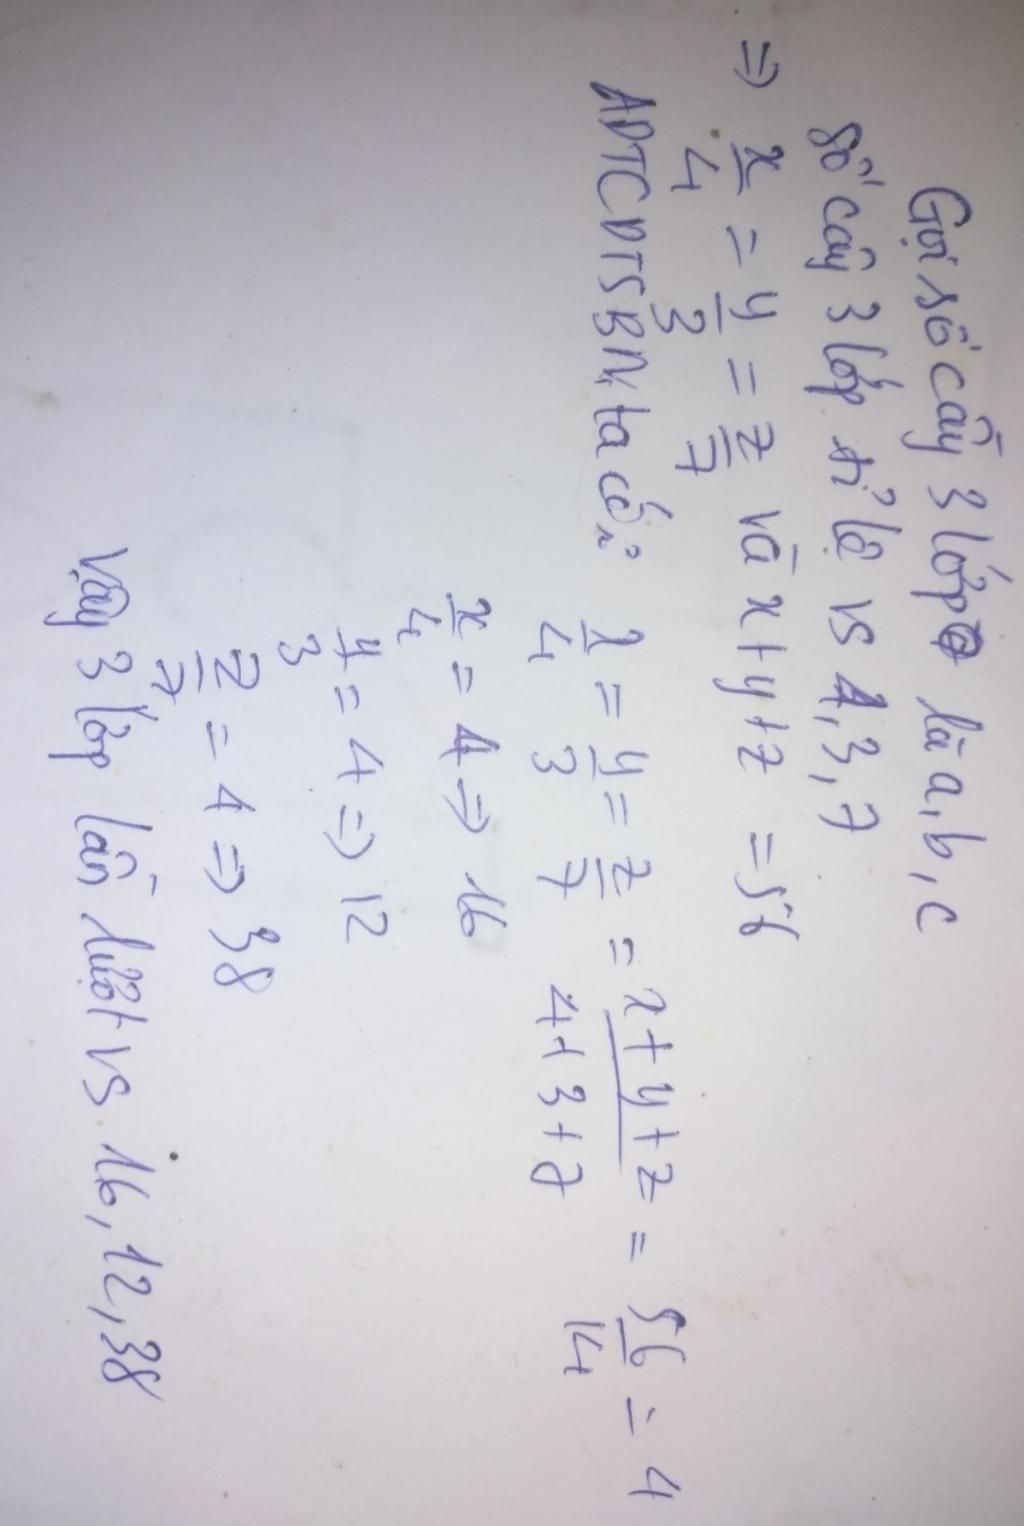 Gọi số cây 3 lớp là a, b, c
số cây 3 lớp tỉ lệ vs 4, 3, 7
=> x/4 = y/3 = z/7 và x+y+z = 56
ADTCDTSBN, ta có:
x/4 = y/3 = z/7 = x+y+z/4+3+7 = 56/14 = 4
x/4 = 4 => 16
y/3 = 4 => 12
z/7 = 4 => 38
Vậy 3 lớp lần lượt vs 16, 12, 38